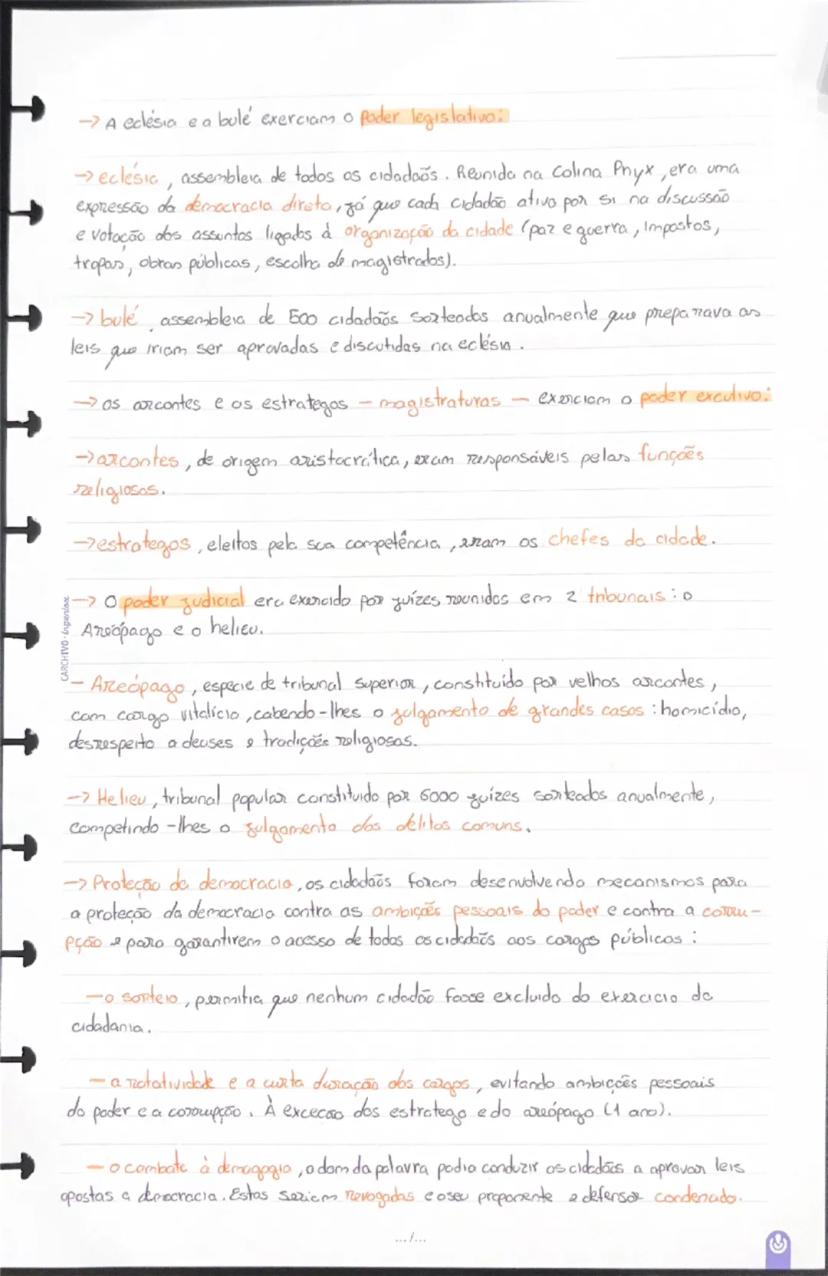 → A eclésia e a bulé exerciam o poder legislativo:
→ eclésia, assembleia de todos os cidadãos. Reunida na Colina Pnyx, era uma
expressão da democracia direta, já que cada cidadão ativo por si na discussão
e votação dos assuntos ligados à organização da cidade (paz e guerra, impostos,
tropas, obras públicas, escolha de magistrados).
→ bulé, assembleia de 500 cidadãos sorteados anualmente que preparava as
leis que iriam ser aprovadas e discutidas na eclésia.
→ os arcontes e os estrategos – magistraturas – exerciam o poder excutivo:
→ arcontes, de origem aristocrática, eram responsáveis pelas funções
religiosas.
→ estrategos, eleitos pela sua competência, eram os chefes da cidade.
→ O poder judicial era exercido por juízes reunidos em 2 tribunais: o
Areópago e o helieu.
CARCHIVO
– Areópago, espécie de tribunal superior, constituído por velhos arcontes,
com cargo vitalício, cabendo-lhes o julgamento de grandes casos: homicídio,
desrespeito a deuses e tradições religiosas.
→ Helieu, tribunal popular constituido por 6000 juízes sorteados anualmente,
competindo-lhes o julgamento dos delitos comuns.
→ Proteção da democracia, os cidadãos foram desenvolvendo mecanismos para
a proteção da democracia contra as ambições pessoais do poder e contra a corru-
pção e para garantirem o acesso de todos os cidadãos aos cargos públicos:
– o sorteio, permitia que nenhum cidadão fosse excluido do exercicio da
cidadania.
– a rotatividade e a curta duração dos cargos, evitando ambições pessoais
do poder e a corrupção. À excecao dos estratego e do areópago (1 ano).
– o combate à demagogia, o dom da palavra podia conduzir os cidadãos a aprovar leis
opostas a democracia. Estas seriam revogadas e o seu proponente e defensor condenado.
.../...